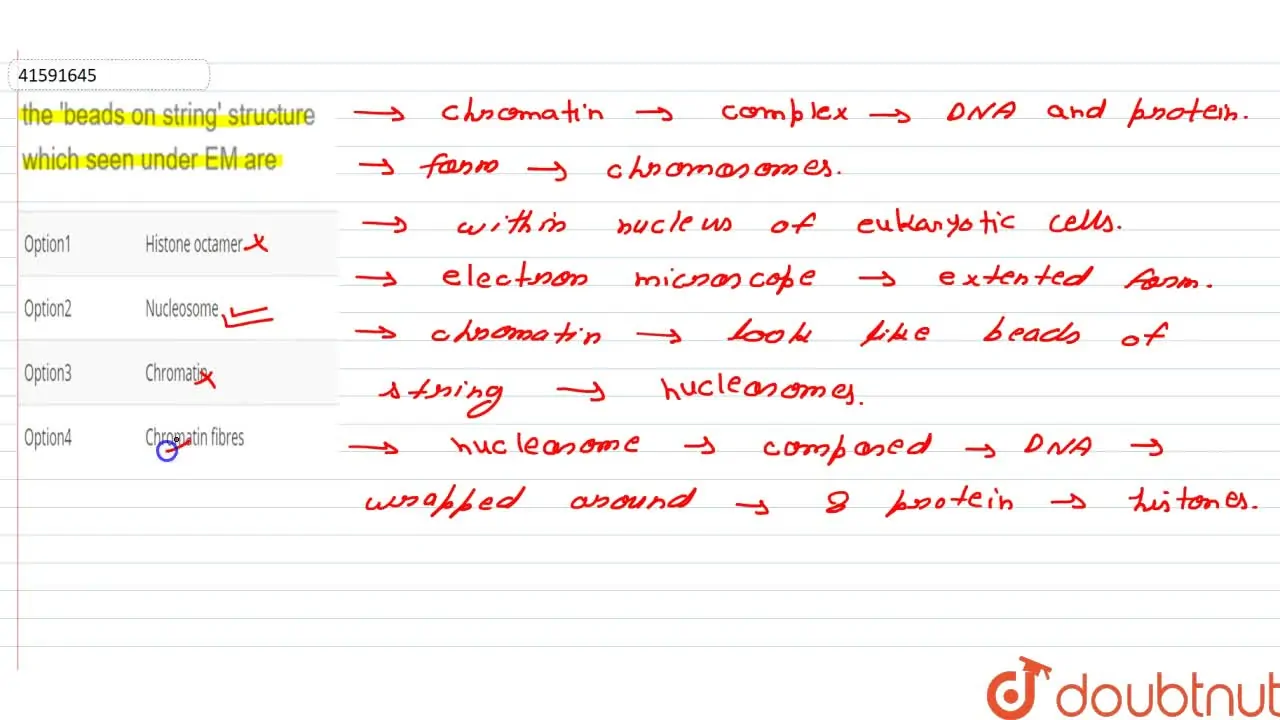 41591645
the 'beads on string' structure
which seen under EM are
Option1 Histone octamer
Option2 Nucleosome
Option3 Chromatin
Option4 Chromatin fibres
→ chromatin → complex → DNA and protein.
→ form → chromosomes.
→ within nucleus of eukaryotic cells.
→ electron microscope → extented form.
→ chromatin → look like beads of
string → nucleosomes.
→ nucleosome → composed → DNA →
wrapped around → 8 protein → histones.
doubtnut